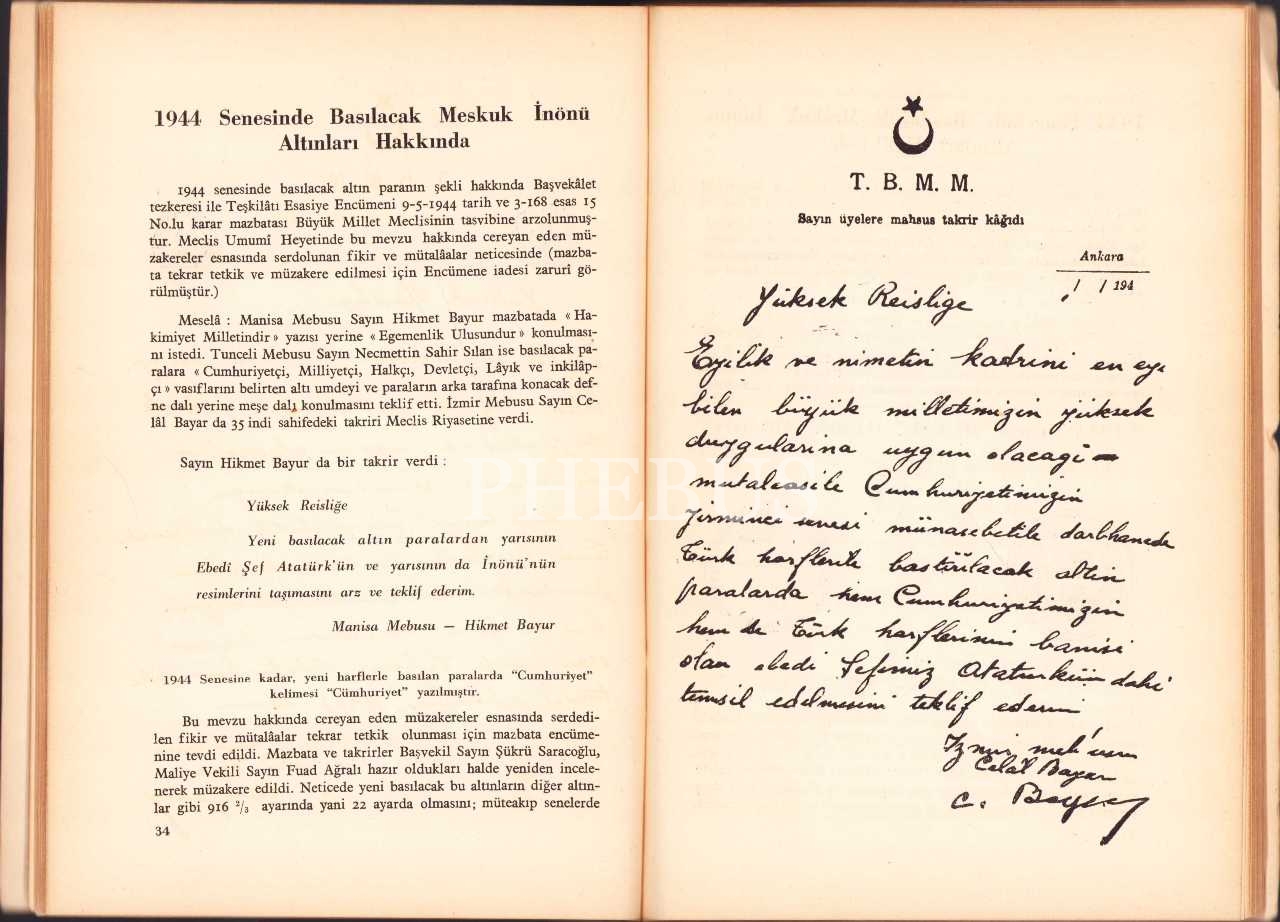 1944 Senesinde Basılacak Meskuk İnönü
Altınları Hakkında
1944 senesinde basılacak altın paranın şekli hakkında Başvekâlet
tezkeresi ile Teşkilâtı Esasiye Encümeni 9-5-1944 tarih ve 3-168 esas 15
No.lu karar mazbatası Büyük Millet Meclisinin tasvibine arzolunmuş-
tur. Meclis Umumî Heyetinde bu mevzu hakkında cereyan eden mü-
zakereler esnasında serdolunan fikir ve mütalâalar neticesinde (mazba-
ta tekrar tetkik ve müzakere edilmesi için Encümene iadesi zarurî gö-
rülmüştür.)
Meselâ : Manisa Mebusu Sayın Hikmet Bayur mazbatada «Ha-
kimiyet Milletindir» yazısı yerine «Egemenlik Ulusundur» konulması-
nı istedi. Tunceli Mebusu Sayın Necmettin Sahir Sılan ise basılacak pa-
ralara «Cumhuriyetçi, Milliyetçi, Halkçı, Devletçi, Lâyık ve inkilâp-
çı» vasıflarını belirten altı umdeyi ve paraların arka tarafına konacak def-
ne dalı yerine meşe dalı konulmasını teklif etti. İzmir Mebusu Sayın Ce-
lâl Bayar da 35 indi sahifedeki takriri Meclis Riyasetine verdi.
Sayın Hikmet Bayur da bir takrir verdi :
Yüksek Reisliğe
Yeni basılacak altın paralardan yarısının
Ebedî Şef Atatürk'ün ve yarısının da İnönü'nün
resimlerini taşımasını arz ve teklif ederim.
Manisa Mebusu — Hikmet Bayur
1944 Senesine kadar, yeni harflerle basılan paralarda "Cumhuriyet"
kelimesi "Cümhuriyet" yazılmıştır.
Bu mevzu hakkında cereyan eden müzakereler esnasında serdedi-
len fikir ve mütalâalar tekrar tetkik olunması için mazbata encüme-
nine tevdi edildi. Mazbata ve takrirler Başvekil Sayın Şükrü Saracoğlu,
Maliye Vekili Sayın Fuad Ağralı hazır oldukları halde yeniden incele-
nerek müzakere edildi. Neticede yeni basılacak bu altınların diğer altın-
lar gibi 916 2/3 ayarında yani 22 ayarda olmasını; müteakıp senelerde
34
PHEBUS
T. B. M. M.
Sayın üyelere mahsus takrir kâğıdı
Ankara
/ / 194
Yüksek Reislige
Eyilik ve nimetin kadrini en eyi
bilen büyük milletimizin yüksek
duygularına uygun olacağı
mutaleasile Cumhuriyetimizin
yirminci senesi münasebetile darbhanede
Türk harflerile bastırılacak altin
paralarda hem Cumhuriyetimizin
hem de Türk harflerinin banisi
olan ebedi Şefimiz Atatürkün dahi
temsil edilmesini teklif ederim
İzmir meb'usu
Celâl Bayar
C. Bayar